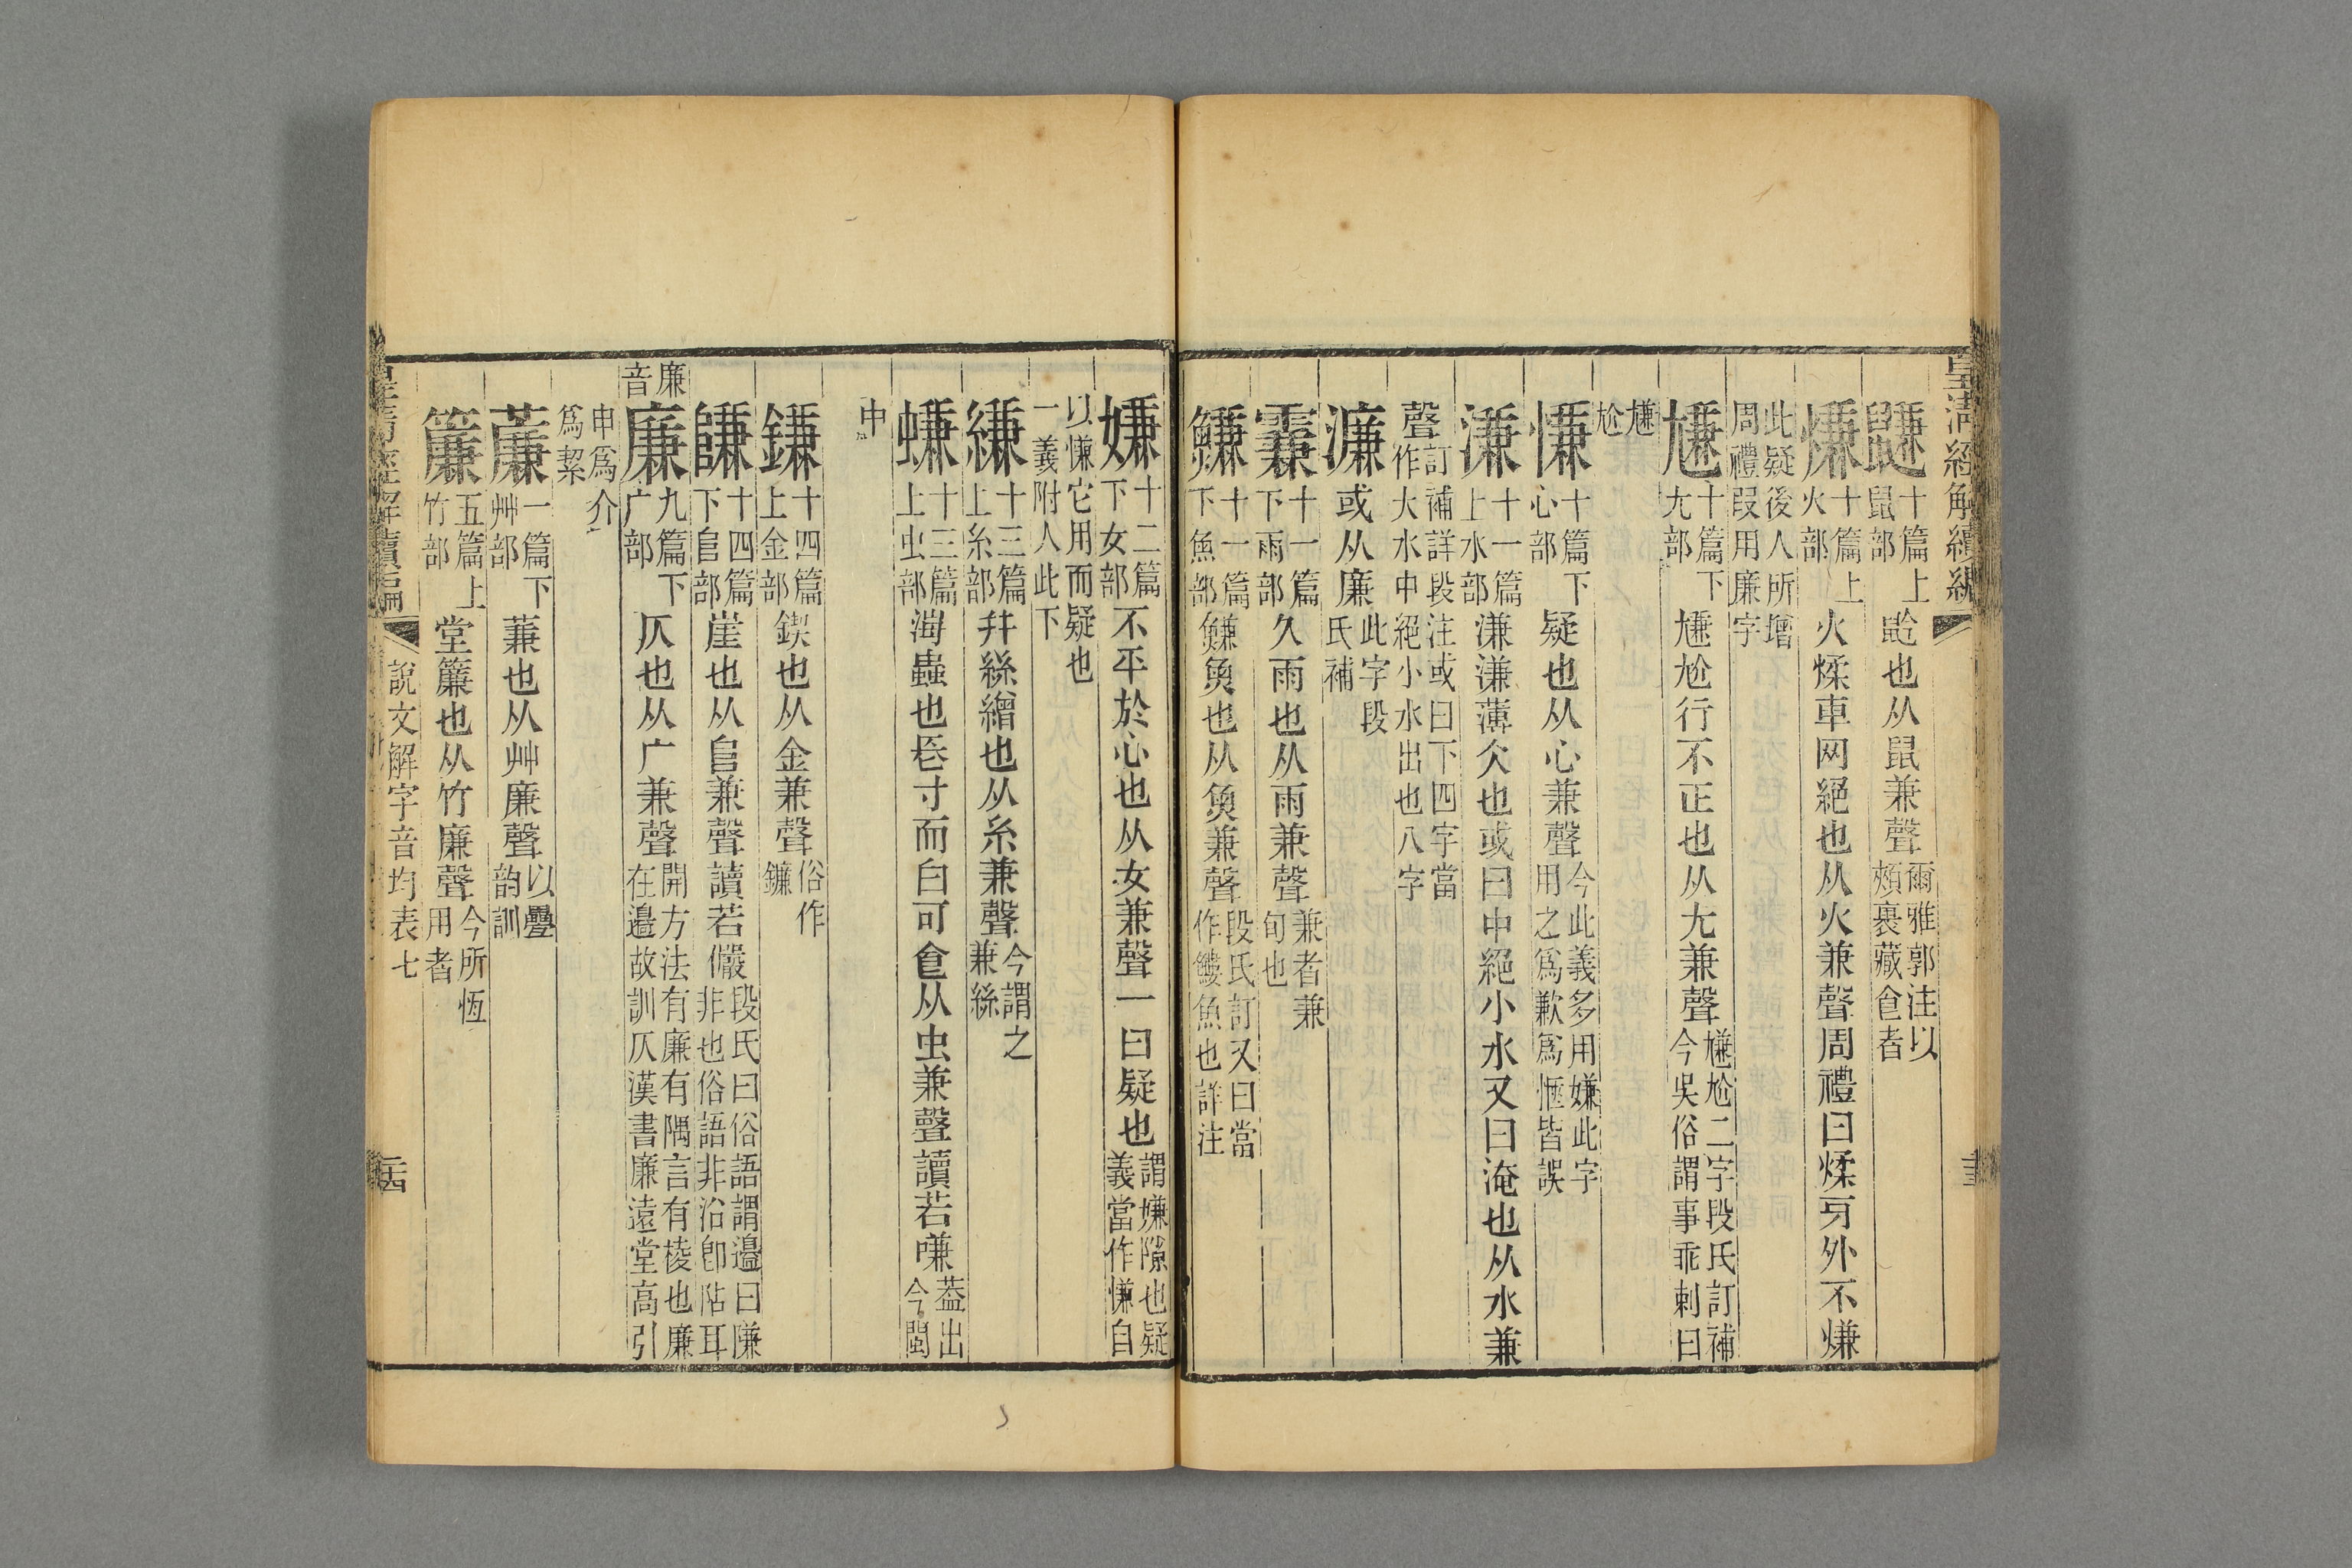 皇清經解續編
鼸十篇上鼠部䶃也从鼠兼聲爾雅郭注以頰裹藏食者
熑十篇上火部火煣車网絕也从火兼聲周禮曰煣牙外不熑
此疑後人所增周禮段用廉字
尲十篇下尢部尲尬行不正也从尢兼聲尲尬二字段氏訂補今吳俗謂事乖剌曰
尲尬
慊十篇下心部疑也从心兼聲今此義多用嫌此字用之爲歉爲愜皆誤
溓十一篇上水部溓溓薄仌也或曰中絕小水又曰淹也从水兼
聲訂補詳段注或曰下四字當作大水中絕小水出也八字
濂或从廉此字段氏補
霖十一篇下雨部久雨也从雨兼聲兼者兼旬也
鰜十一篇下魚部鰜魚也从魚兼聲段氏訂又曰當作鰱魚也詳注
嫌十二篇下女部不平於心也从女兼聲一曰疑也謂嫌隙也疑義當作慊自
以慊它用而疑也一義附人此下
縑十三篇上糸部幷絲繒也从糸兼聲今謂之兼絲
蠊十三篇上虫部海蟲也長寸而白可食从虫兼聲讀若嗛葢出今閩
中
鎌十四篇上金部鍥也从金兼聲俗作鐮
隒十四篇下𨸏部崖也从𨸏兼聲讀若儼段氏曰俗語謂邊曰隒非也俗語非沿卽阽耳
廉音廉九篇下广部仄也从广兼聲開方法有廉有隅言有棱也廉在邉故訓仄漢書廉遠堂高引
申爲介爲絜
薕一篇下艸部蒹也从艸廉聲以疊韵訓
簾五篇上竹部堂簾也从竹廉聲今所恆用者
皇清經解續編 說文解字音均表七 二十四